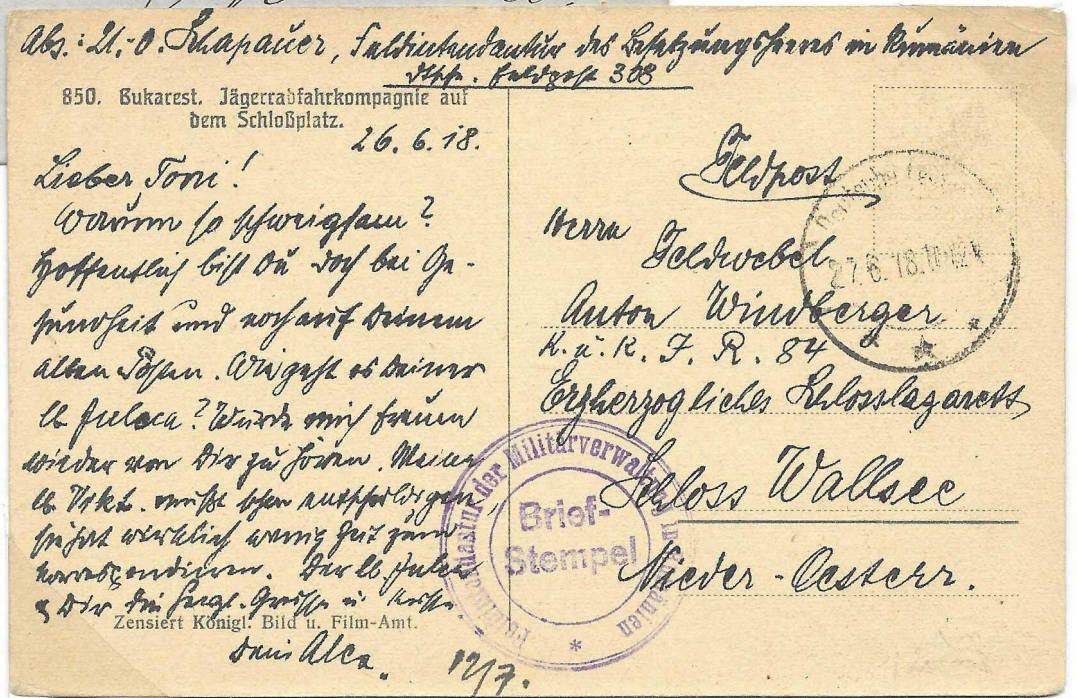 Abs.: U.-O. Schapauer, Feldintendantur des Besatzungsheeres in Rumänien
Dtsche. Feldpost 308
850. Bukarest. Jägerradfahrkompagnie auf
dem Schloßplatz.
26. 6. 18.
Lieber Toni!
Warum so schweigsam?
Hoffentlich bist Du doch bei Ge-
sundheit und noch auf Deinem
alten Posten. Wie geht es Deiner
lb. ? Würde mich freuen
wieder von Dir zu hören. Meine
lb. mußt schon entschuldigen,
sie hat wirklich wenig Zeit zum
korrespondieren. Der lb.
u Dir die herzl. Grüße u.
Zensiert Königl. Bild u. Film-Amt.
Dein
12/7.
Feldpost
Herrn
Feldwebel
Anton Windberger
K. u. K. I. R. 84
Erzherzogliches Schlosslazarett
Schloss Wallsee
Nieder-Oesterr.
Deutsche
27.6.18.
Feldintendantur der Militärverwaltung in Rumänien
Brief-
Stempel